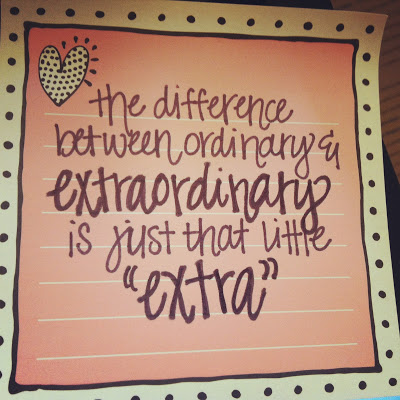 the difference
between ordinary &
extraordinary
is just that little
"extra"